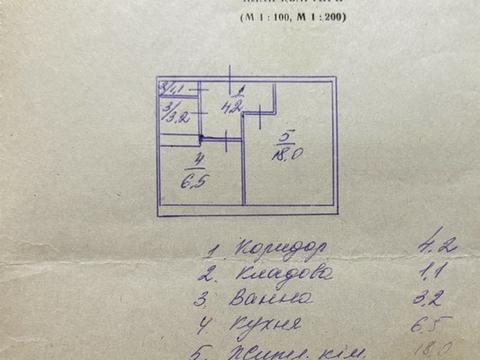 (М 1 : 100, М 1 : 200)
2/1,1
1/4,2
3/3,2
5/18,0
4/6,5
1. Коридор 4.2
2. Кладова 1,1
3. Ванна 3,2
4. Кухня 6,5
5. Житл. кім. 18,0